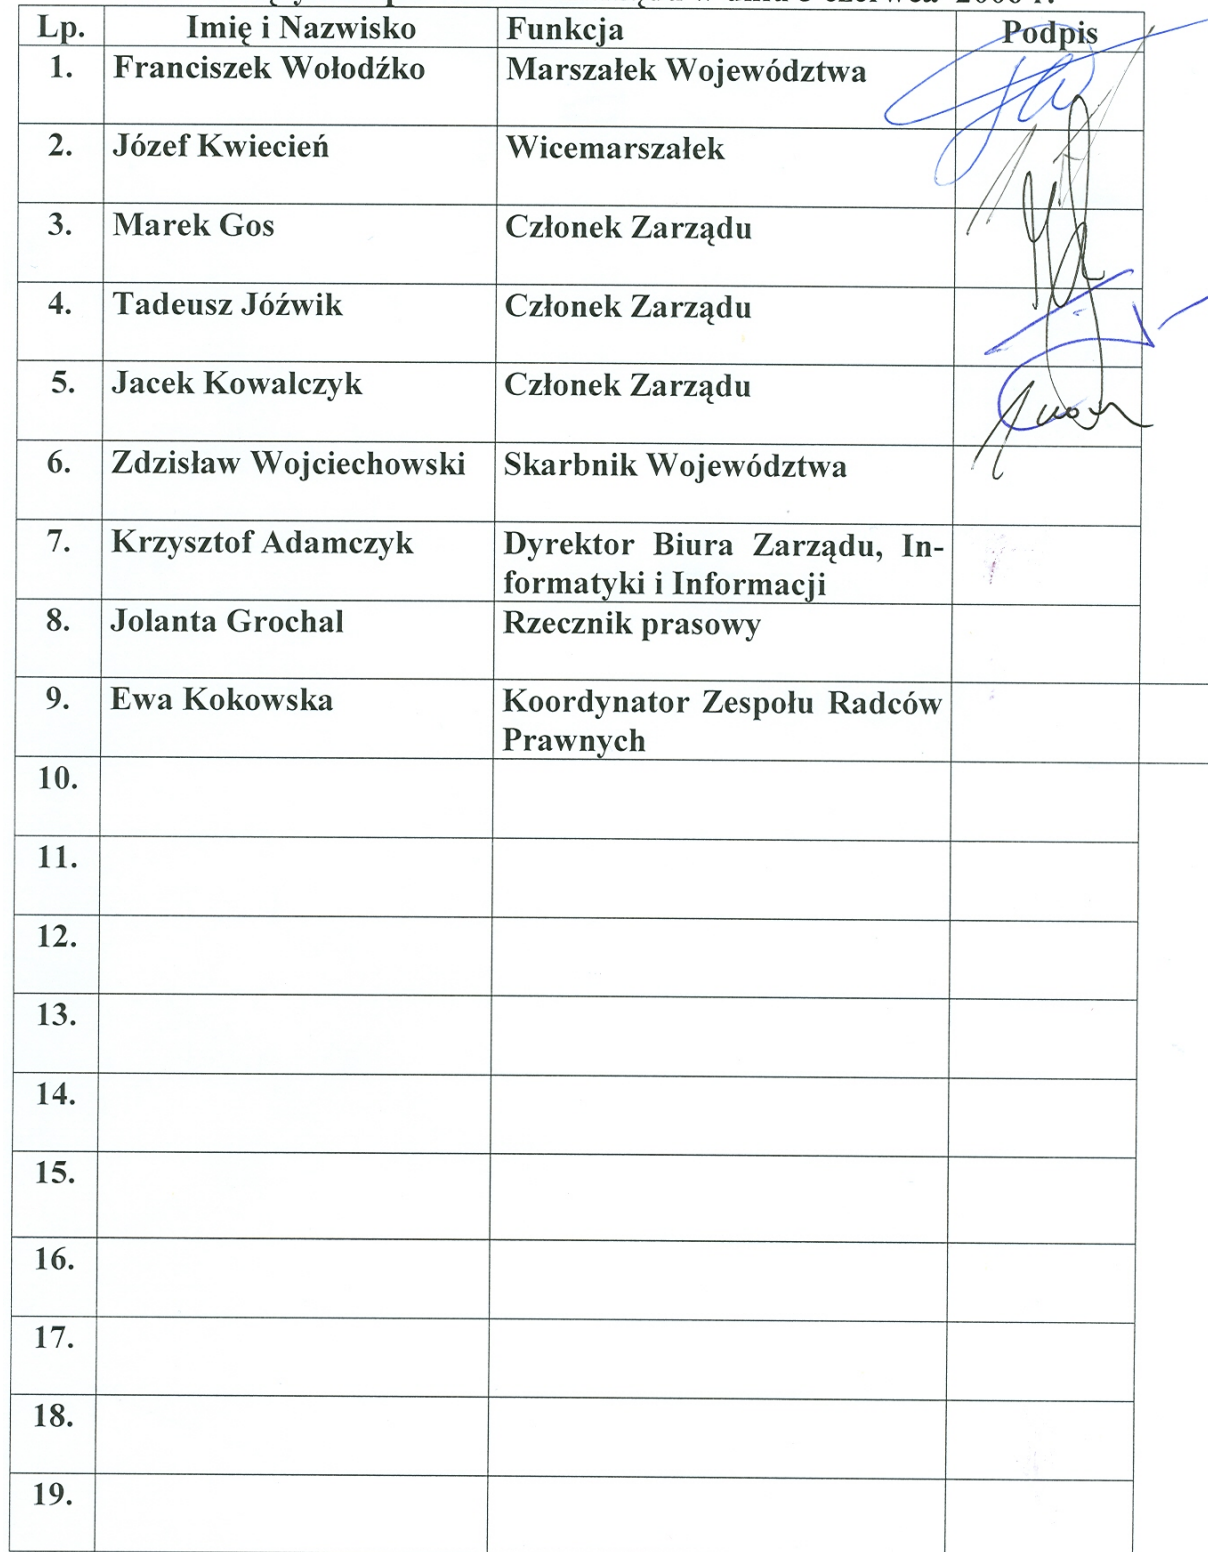 w dniu 5 czerwca 2006 r.
Lp. Imię i Nazwisko Funkcja Podpis
1. Franciszek Wołodźko Marszałek Województwa
2. Józef Kwiecień Wicemarszałek
3. Marek Gos Członek Zarządu
4. Tadeusz Jóźwik Członek Zarządu
5. Jacek Kowalczyk Członek Zarządu
6. Zdzisław Wojciechowski Skarbnik Województwa
7. Krzysztof Adamczyk Dyrektor Biura Zarządu, In-
formatyki i Informacji
8. Jolanta Grochal Rzecznik prasowy
9. Ewa Kokowska Koordynator Zespołu Radców
Prawnych
10.
11.
12.
13.
14.
15.
16.
17.
18.
19.